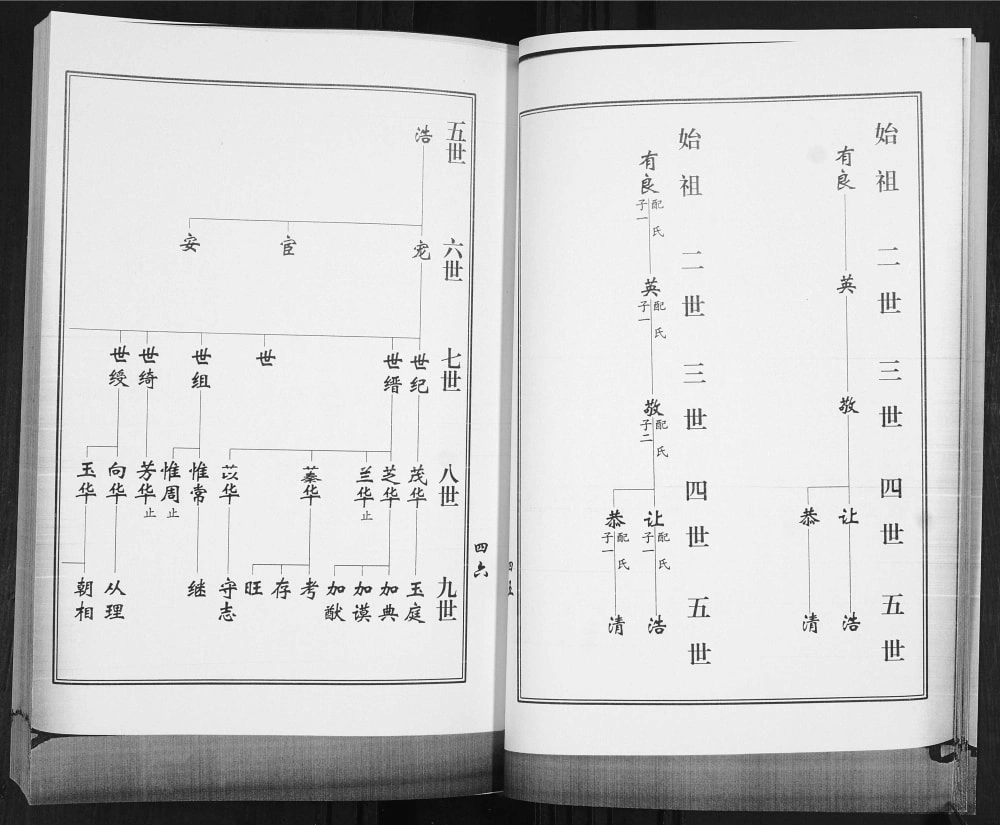 始祖 二世 三世 四世 五世
有良
英
敬
让 恭
浩 清
始祖 二世 三世 四世 五世
有良
配氏
子一
英
配氏
子一
敬
配氏
子二
让
配氏
子一
恭
配氏
子一
浩 清
四五
四六
五世
浩
六世
宠 宦 安
七世
世纪 世缙 世 世组 世绮 世绶
八世
茂华 芝华 兰华止 蓁华 苡华 惟常 惟周止 芳华止 向华 玉华
九世
玉庭 加典 加谟 加猷 考 存 旺 守志 继 从理 朝相